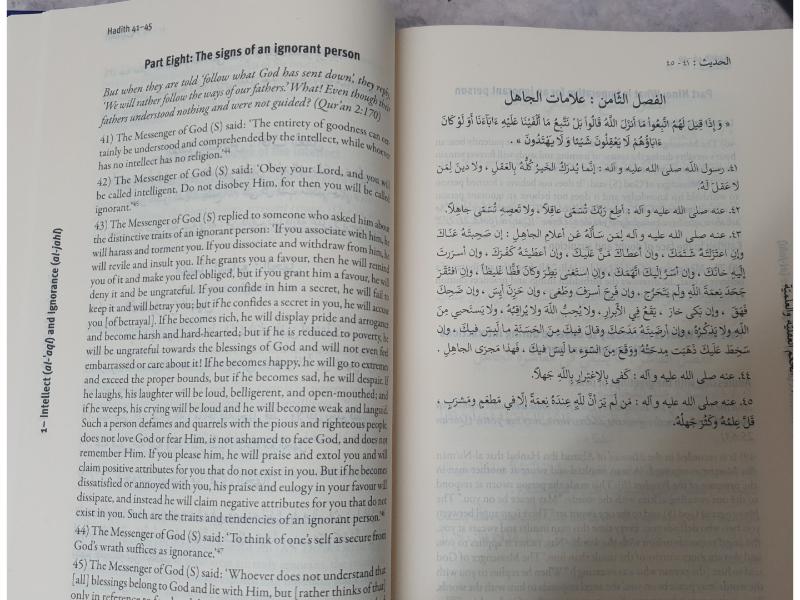 Hadith 41–45
Part Eight: The signs of an ignorant person
But when they are told 'follow what God has sent down', they reply,
'We will rather follow the ways of our fathers.' What! Even though their
fathers understood nothing and were not guided? (Qur'an 2:170)
41) The Messenger of God (S) said: 'The entirety of goodness can cer-
tainly be understood and comprehended by the intellect, while whoever
has no intellect has no religion.'44
42) The Messenger of God (S) said: 'Obey your Lord, and you will
be called intelligent. Do not disobey Him, for then you will be called
ignorant.'45
43) The Messenger of God (S) replied to someone who asked him about
the distinctive traits of an ignorant person: 'If you associate with him, he
will harass and torment you. If you dissociate and withdraw from him, he
will revile and insult you. If he grants you a favour, then he will remind
you of it and make you feel obliged, but if you grant him a favour, he will
deny it and be ungrateful. If you confide in him a secret, he will fail to
keep it and will betray you; but if he confides a secret in you, he will accuse
you [of betrayal]. If he becomes rich, he will display pride and arrogance
and become harsh and hard-hearted; but if he is reduced to poverty, he
will be ungrateful towards the blessings of God and will not even feel
embarrassed or care about it! If he becomes happy, he will go to extremes
and exceed the proper bounds, but if he becomes sad, he will despair. If
he laughs, his laughter will be loud, belligerent, and open-mouthed; and
if he weeps, his crying will be loud and he will become weak and languid.
Such a person defames and quarrels with the pious and righteous people,
does not love God or fear Him, is not ashamed to face God, and does not
remember Him. If you please him, he will praise and extol you and will
claim positive attributes for you that do not exist in you. But if he becomes
dissatisfied or annoyed with you, his praise and eulogy in your favour will
dissipate, and instead he will claim negative attributes for you that do not
exist in you. Such are the traits and tendencies of an ignorant person.'46
44) The Messenger of God (S) said: 'To think of one's self as secure from
God's wrath suffices as ignorance.'47
45) The Messenger of God (S) said: 'Whoever does not understand that
[all] blessings belong to God and lie with Him, but [rather thinks of that]
1– Intellect (al-ʿaql) and Ignorance (al-jahl)
الحديث : ٤١ - ٤٥
الفصل الثامن : علامات الجاهل
« وَ إِذَا قِيلَ لَهُمُ اتَّبِعُوا مَا أَنْزَلَ اللَّهُ قَالُوا بَلْ نَتَّبِعُ مَا أَلْفَيْنَا عَلَيْهِ ءَابَآءَنَا أَوَ لَوْ كَانَ
ءَابَاؤُهُمْ لَا يَعْقِلُونَ شَيْئًا وَ لَا يَهْتَدُونَ » .
٤١. رسول اللّه صلى الله عليه و آله : إنَّما يُدرَكُ الخَيرُ كُلُّهُ بِالعَقلِ ، ولا دينَ لِمَن
لا عَقلَ لَهُ.
٤٢. عنه صلى الله عليه و آله : أطِع رَبَّكَ تُسَمّى عاقِلاً ، ولا تَعصِهِ تُسَمّى جاهِلاً.
٤٣. عنه صلى الله عليه و آله لِمَن سَأَلَهُ عَن أعلامِ الجاهِلِ : إن صَحِبتَهُ عَنّاكَ
وإنِ اعتَزَلتَهُ شَتَمَكَ ، وإن أعطاكَ مَنَّ عَلَيكَ ، وإن أعطَيتَهُ كَفَرَكَ ، وإن أسرَرتَ
إلَيهِ خانَكَ ، وإن أسَرَّ إلَيكَ اتَّهَمَكَ ، وإنِ استَغنى بَطِرَ وكانَ فَظًّا غَليظاً ، وإنِ افتَقَرَ
جَحَدَ نِعمَةَ اللّهِ ولَم يَتَحَرَّج ، وإن فَرِحَ أسرَفَ وطَغى ، وإن حَزِنَ أيِسَ ، وإن ضَحِكَ
فَهَقَ ، وإن بَكى خارَ ، يَقَعُ فِي الأَبرارِ ، ولا يُحِبُّ اللّهَ ولا يُراقِبُهُ ، ولا يَستَحيي مِنَ
اللّهِ ولا يَذكُرُهُ ، إن أرضَيتَهُ مَدَحَكَ وقالَ فيكَ مِنَ الحَسَنَةِ ما لَيسَ فيكَ ، وإن
سَخِطَ عَلَيكَ ذَهَبَت مِدحَتُهُ ووَقَعَ مِنَ السّوءِ ما لَيسَ فيكَ ، فَهذا مَجرَى الجاهِلِ .
٤٤. عنه صلى الله عليه و آله : كَفى بِالاِغتِرارِ بِاللّهِ جَهلاً.
٤٥. عنه صلى الله عليه و آله : مَن لَم يَرَ أنَّ لِلّهِ عِندَهُ نِعمَةً إلّا في مَطعَمٍ ومَشرَبٍ ،
قَلَّ عِلمُهُ وكَثُرَ جَهلُهُ.